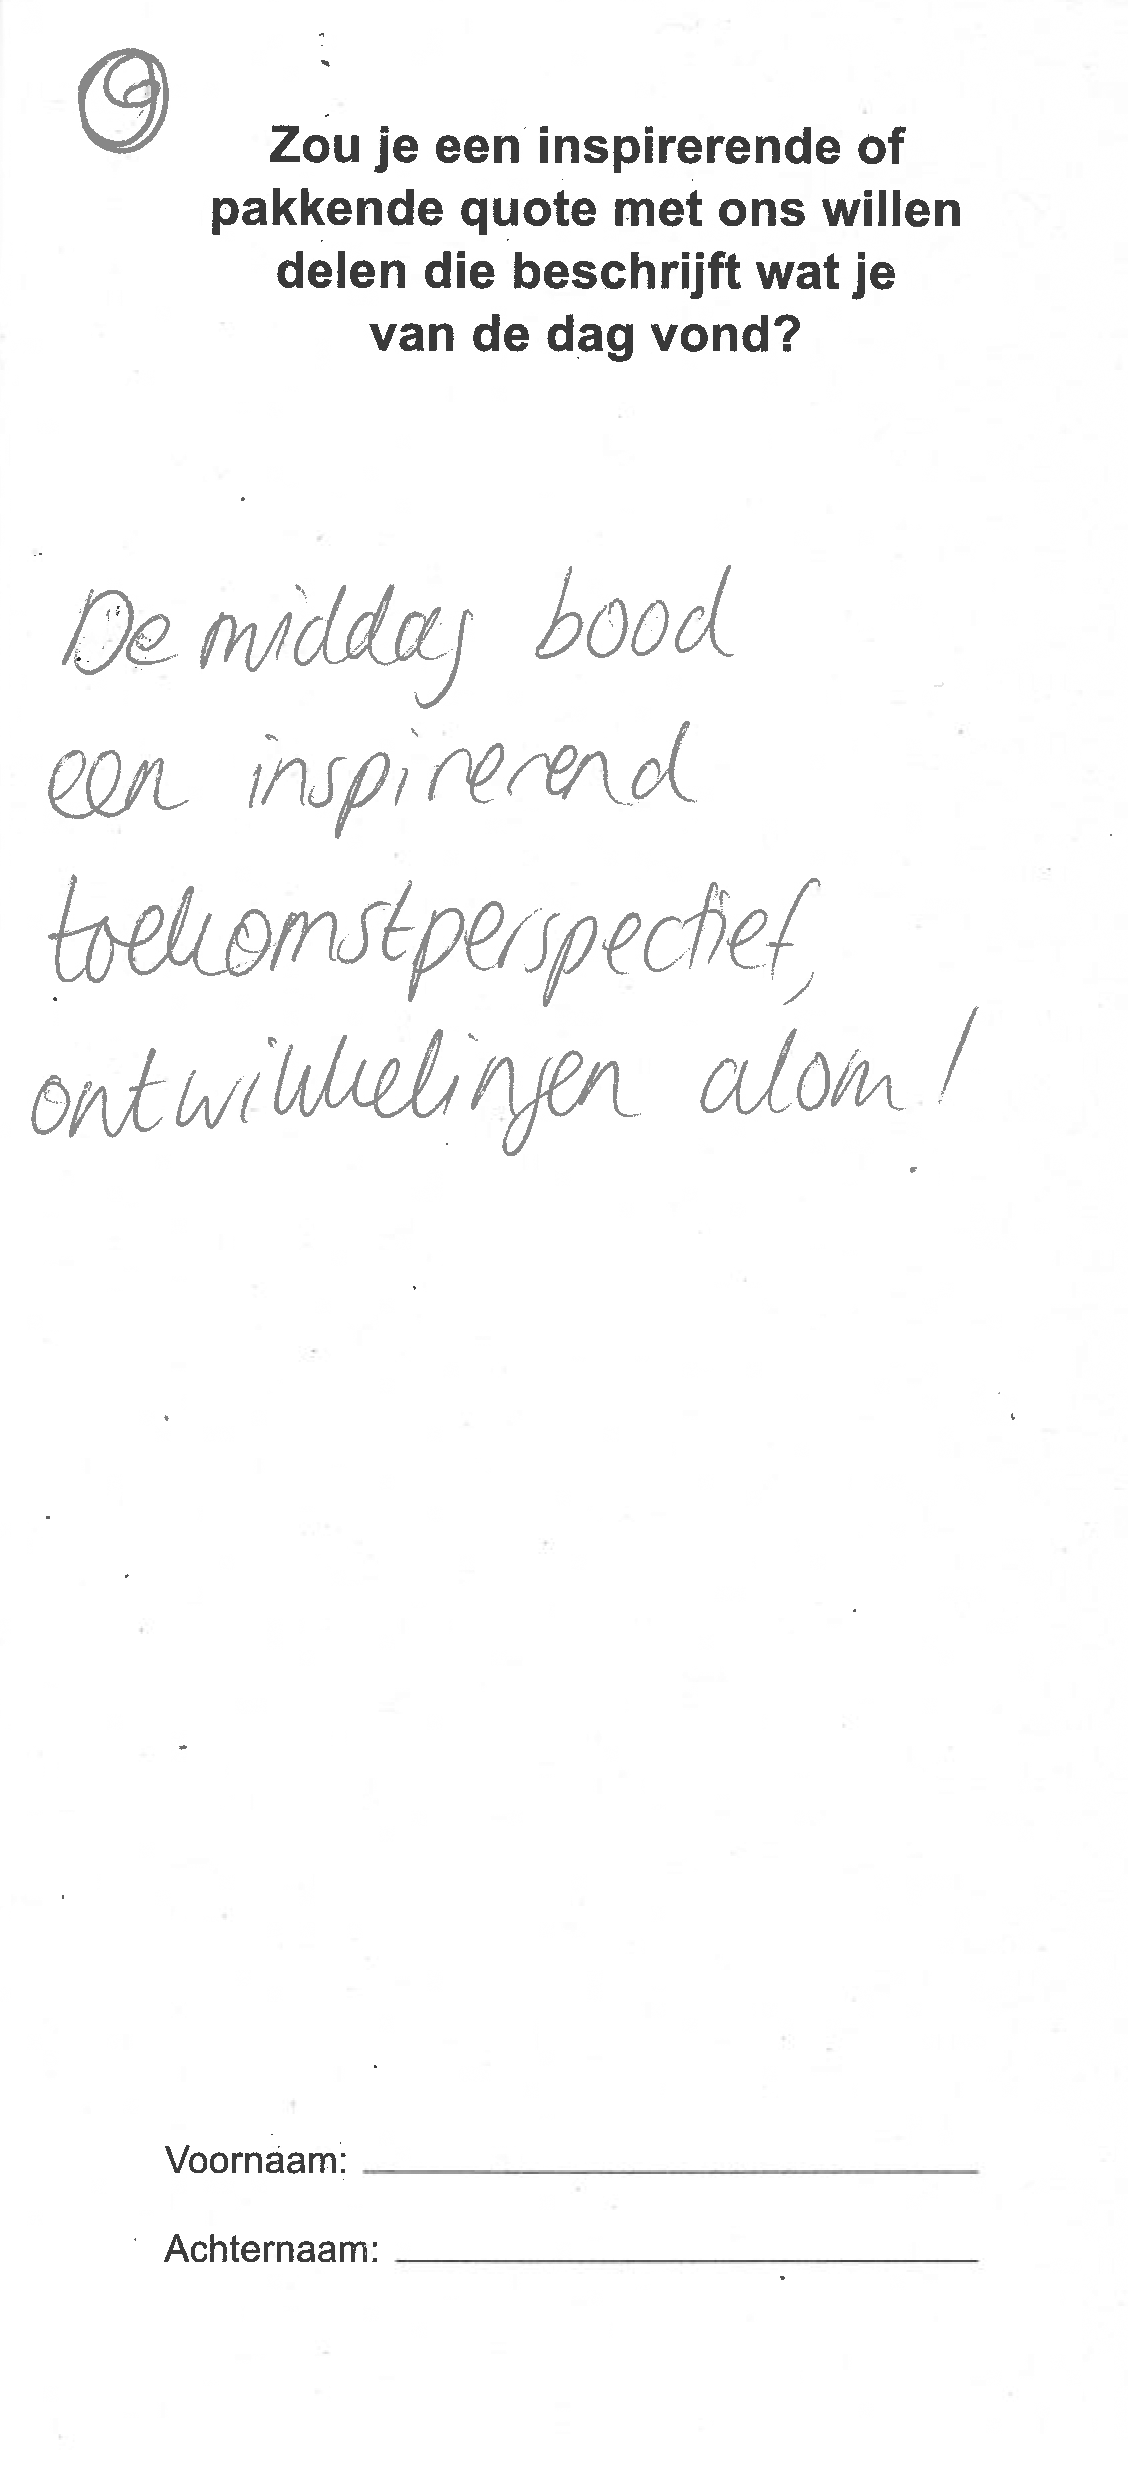 Zou je een inspirerende of
pakkende quote met ons willen
delen die beschrijft wat je
van de dag vond?
De middag bood
een inspirerend
toekomstperspectief,
ontwikkelingen alom!
Voornaam:
Achternaam: